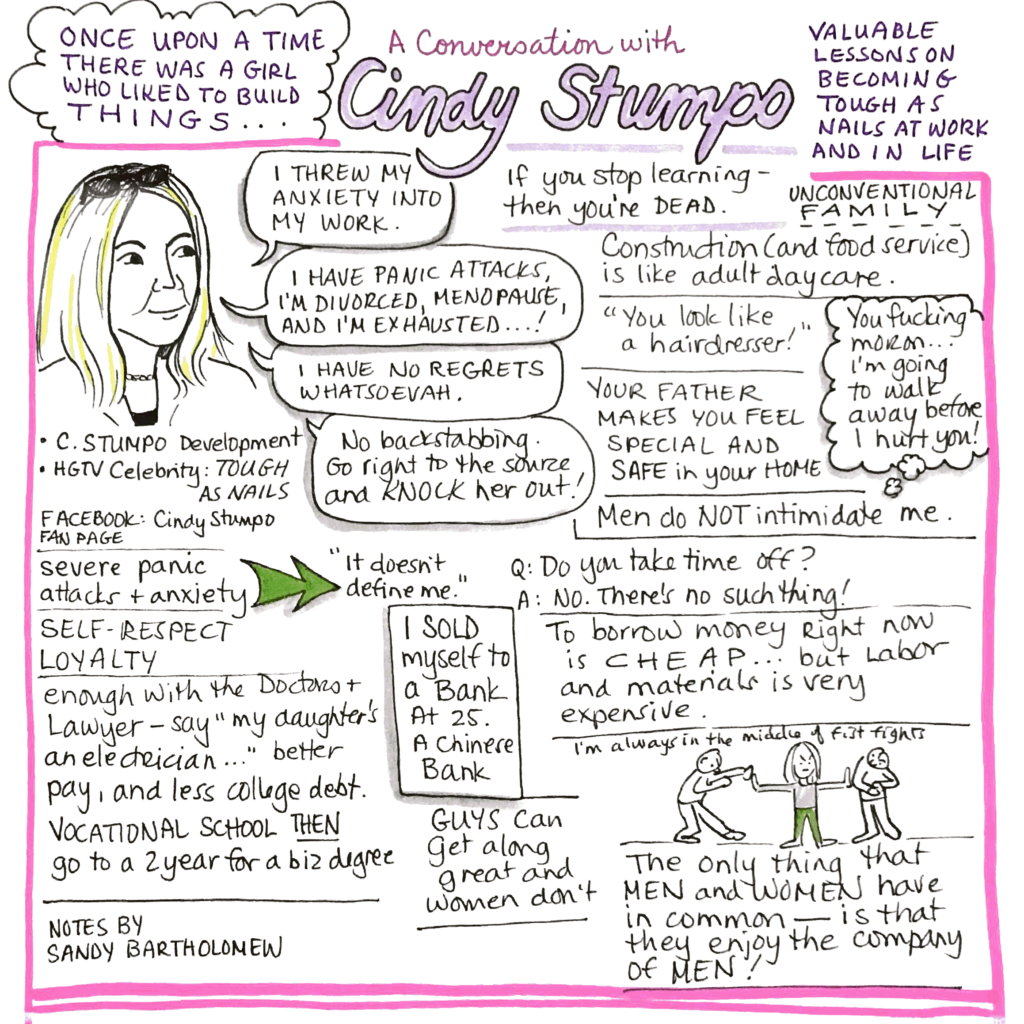 ONCE UPON A TIME
THERE WAS A GIRL
WHO LIKED TO BUILD
THINGS...
A Conversation with
Cindy Stumpo
VALUABLE
LESSONS ON
BECOMING
TOUGH AS
NAILS AT WORK
AND IN LIFE
I THREW MY
ANXIETY INTO
MY WORK.
I HAVE PANIC ATTACKS,
I'M DIVORCED, MENOPAUSE,
AND I'M EXHAUSTED...!
I HAVE NO REGRETS
WHATSOEVAH.
No backstabbing.
Go right to the source
and KNOCK her out!
• C. STUMPO Development
• HGTV Celebrity: TOUGH
AS NAILS
FACEBOOK: Cindy Stumpo
FAN PAGE
If you stop learning –
then you're DEAD.
UNCONVENTIONAL
FAMILY
Construction (and food service)
is like adult daycare.
"You look like
a hairdresser!"
You fucking
moron...
I'm going
to walk
away before
I hurt you!
YOUR FATHER
MAKES YOU FEEL
SPECIAL AND
SAFE in your HOME
Men do NOT intimidate me.
severe panic
attacks + anxiety
"It doesn't
define me."
SELF-RESPECT
LOYALTY
enough with the Doctors +
Lawyer – say "my daughter's
an electrician..." better
pay, and less college debt.
VOCATIONAL SCHOOL THEN
go to a 2 year for a biz degree
I SOLD
myself to
a Bank
At 25.
A Chinese
Bank
GUYS Can
get along
great and
women don't
Q: Do you take time off?
A: NO. There's no such thing!
To borrow money Right now
is CHEAP... but Labor
and materials is very
expensive.
I'm always in the middle of fist fights
The only thing that
MEN and WOMEN have
in common – is that
they enjoy the company
of MEN!
NOTES BY
SANDY BARTHOLOMEW